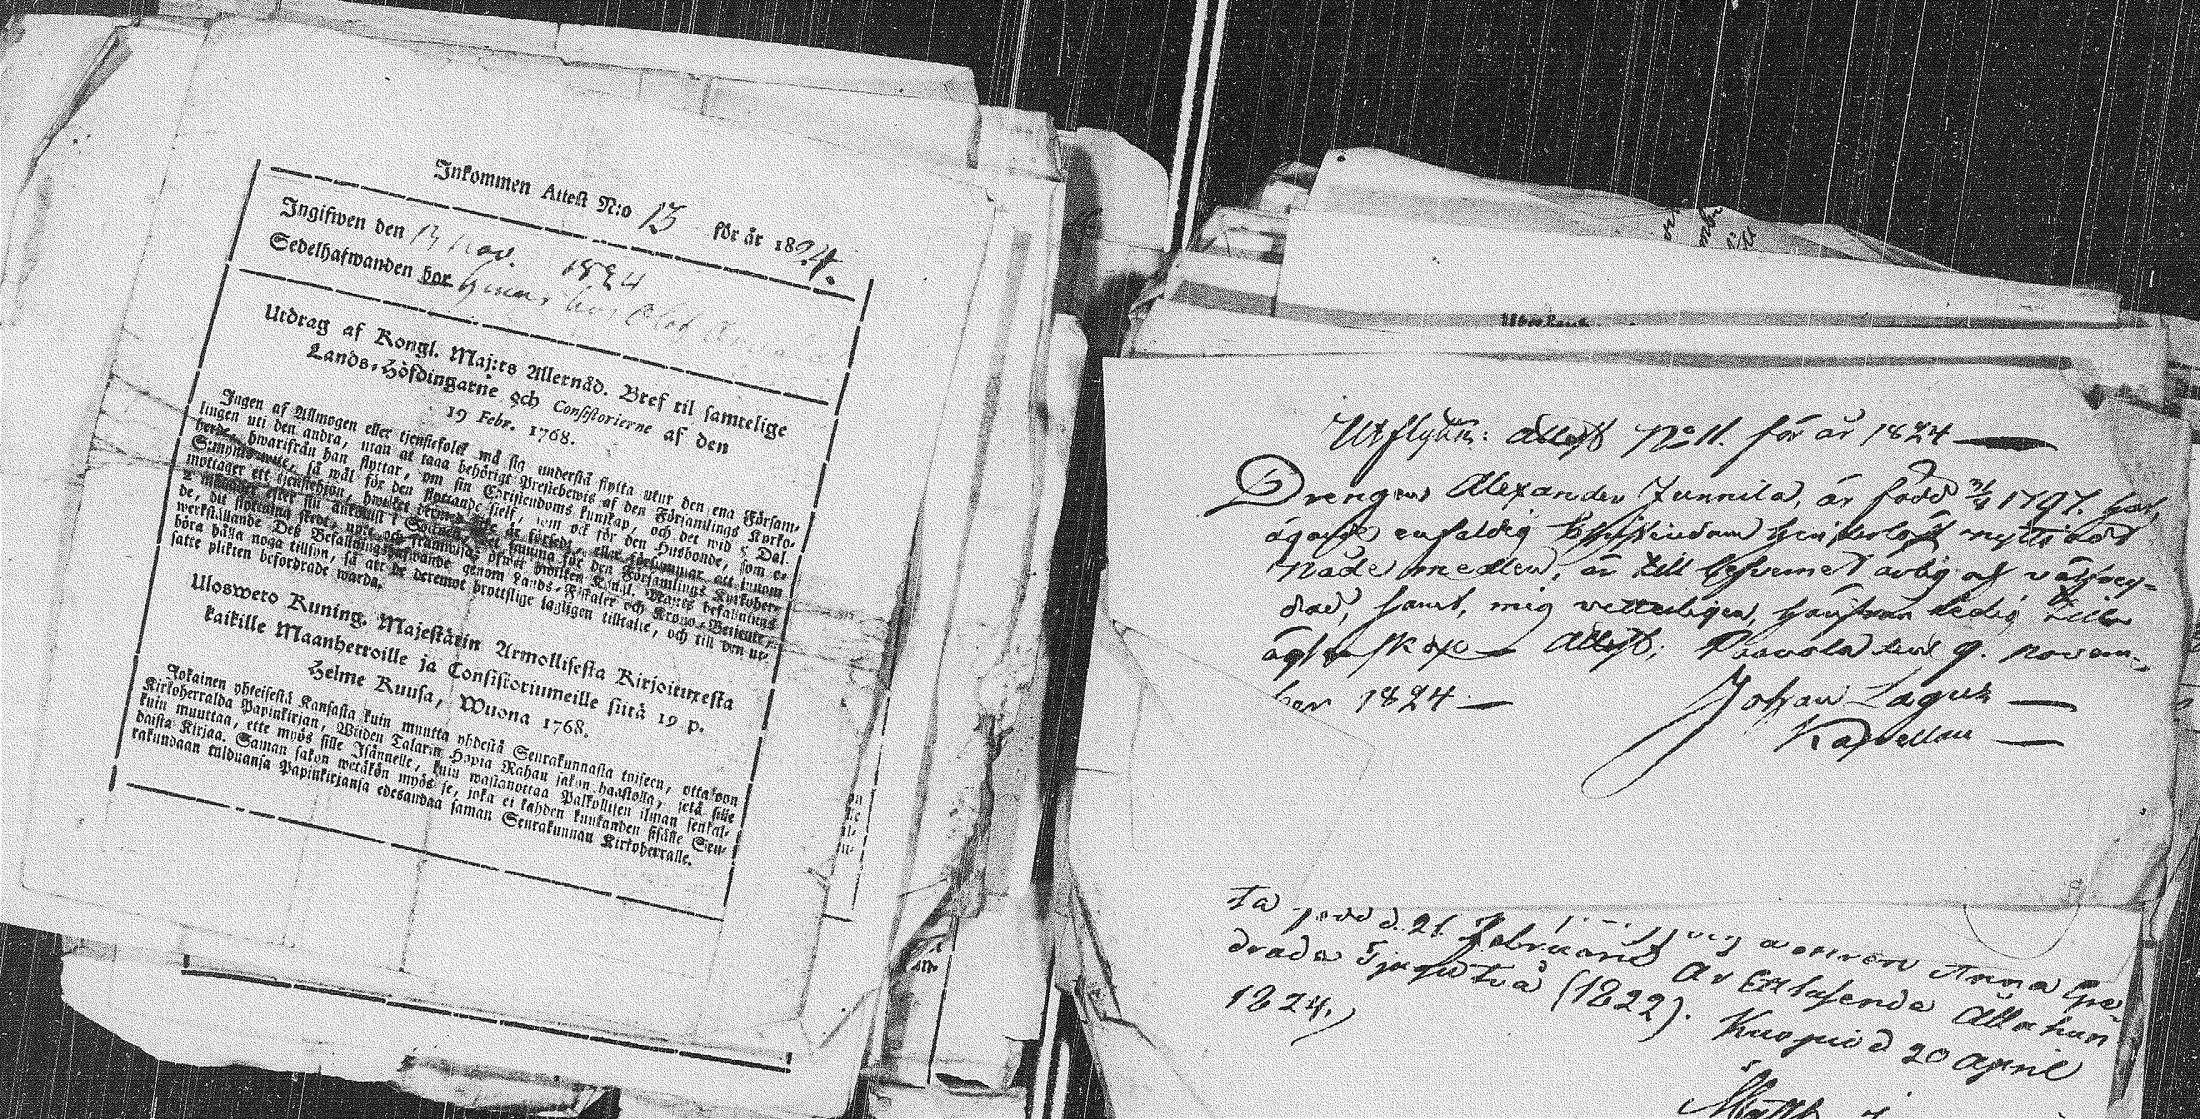 Inkommen Attest N:o 13 för år 1824.
Ingifwen den 13 Nov. 1824
Sedelhafwanden har hos Olof
Utdrag af Kongl. Maj:ts Allernåd. Bref til samtelige
Lands-Höfdingarne och Consistorierne af den
19 Febr. 1768.
Ingen af Allmogen eller tjenstefolck må sig understå flytta utur den ena Försam-
lingen uti den andra, utan at taga behörigt Prestebewis af den Församlings Kyrko-
herde, hwarifrån han flyttar, om sin Christendoms kunskap, och det wid 5 Dal.
S:mynts wite, så wäl för den flyttande sielf, som ock för den Husbonde, som e-
mottager ett tjenstehjon, hwilket dermed icke är försedt, eller försummar att innom
2 månader efter sin ankomst i Socknen, det samma för den Församlings Kyrkoher-
de, dit flyttning skedt, upte och framwisa; öfwer hwilken Kongl. Maj:ts befallnings
werkställande Deß Befallningshafwande genom Lands-Fiskaler och Krono-Betjente,
höra hålla noga tillsyn, så att de deremot brottslige lagligen tilltalte, och till den ut-
satte plikten befordrade warda.
Ulosweto Kuning. Majestätin Armollisesta Kirjoituxesta
kaikille Maanherroille ja Consistoriumeille siitä 19 p.
Helme Kuusa, Wuona 1768.
Jokainen yhteisestä Kansasta kuin muutta yhdestä Seurakunnasta toiseen, ottakoon
Kirkoherralda Papinkirjan, Wiiden Talarin Hopia Rahan sakon haastolla, sekä sille
kuin muuttaa, ette myös sille Isännelle, kuin wastanottaa Palkollisen ilman senkal-
daista Kirjaa. Saman sakon wetäkön myös se, joka ei kahden kuukauden sisälle Seu-
rakundaan tulduansa Papinkirjansa edesandaa saman Seurakunnan Kirkoherralle.
Utflyttn: Attest No 11. för år 1824
Drengen Alexander Junnila, är född 1797. har,
ägande enfaldig Christendom hinderlöst nyttjat
Nåde medlen, är till lefvernet ärlig och välfrey-
dad, samt, mig vetterligen, härifrån ledig till
ägtenskap Attest; Paavola den 9. novem-
ber 1824
Johan Lagus
Kapellan
ta född d. 21. Februarii Anna Gre-
drade Tjugu två (1822). Ar Ett tusende Åtta hun
1824.) Kuopio d 20 April